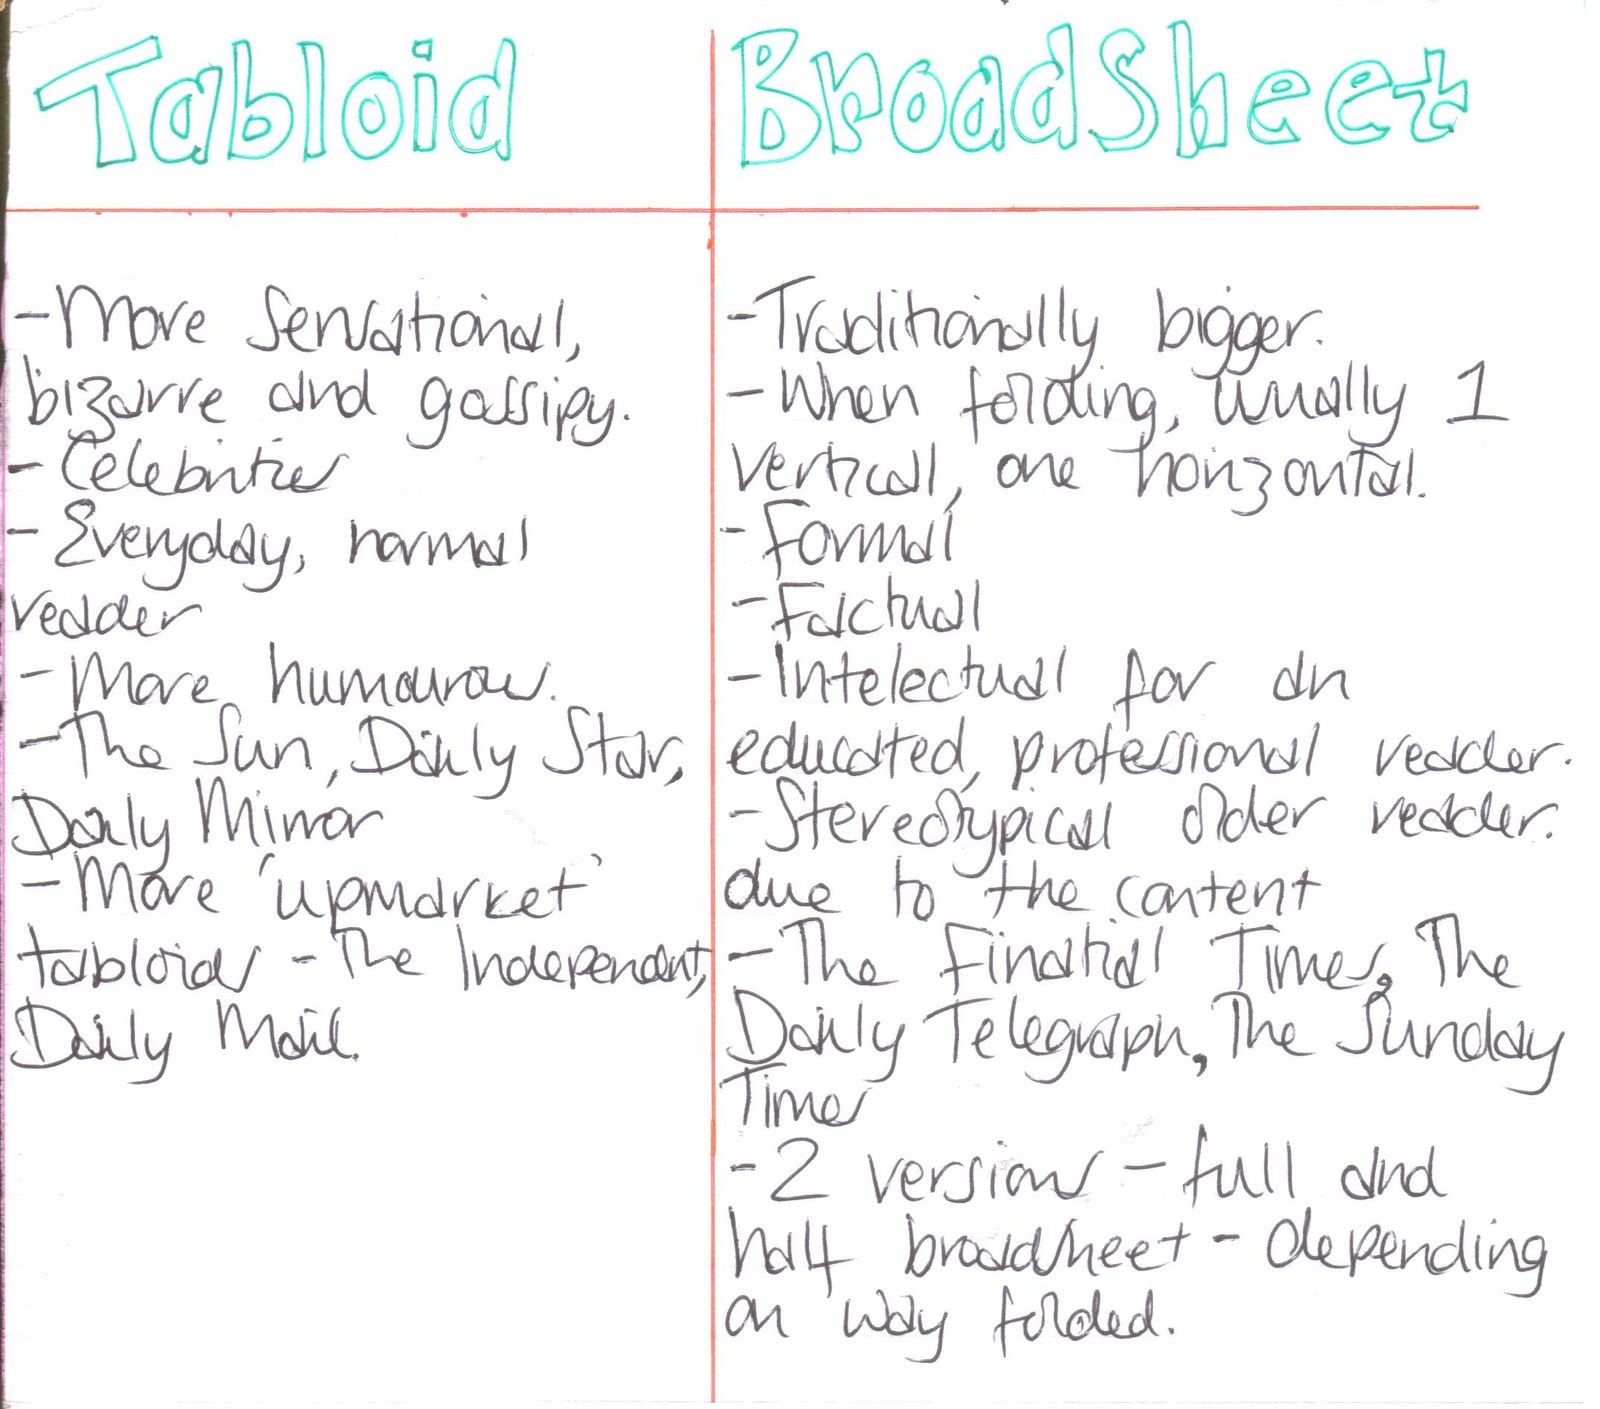 Tabloid
- More sensational,
bizarre and gossipy.
- Celebrities
- Everyday, normal
reader
- More humourous.
- The Sun, Daily Star,
Daily Mirror
- More 'upmarket'
tabloids - The Independent,
Daily Mail.
BroadSheet
- Traditionally bigger.
- When folding, usually 1
vertical, one horizontal.
- Formal
- Factual
- Intelectual for an
educated, professional reader.
- Stereotypical older reader.
due to the content
- The Finatial Times, The
Daily Telegraph, The Sunday
Times
- 2 versions - full and
half broadsheet - depending
on way folded.